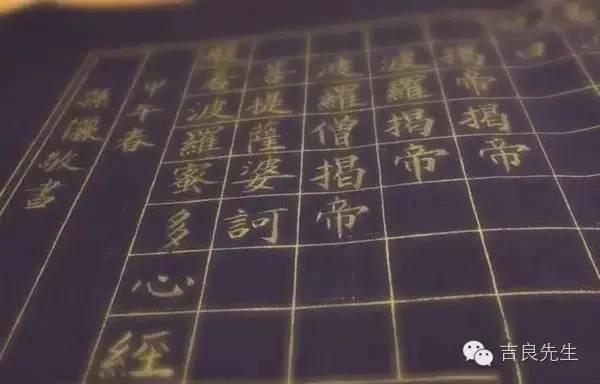 曰
揭帝揭帝
波羅揭帝
波羅僧揭帝
菩提薩婆訶
般若波羅蜜多心經
甲午春
孫儷敬書
吉良先生